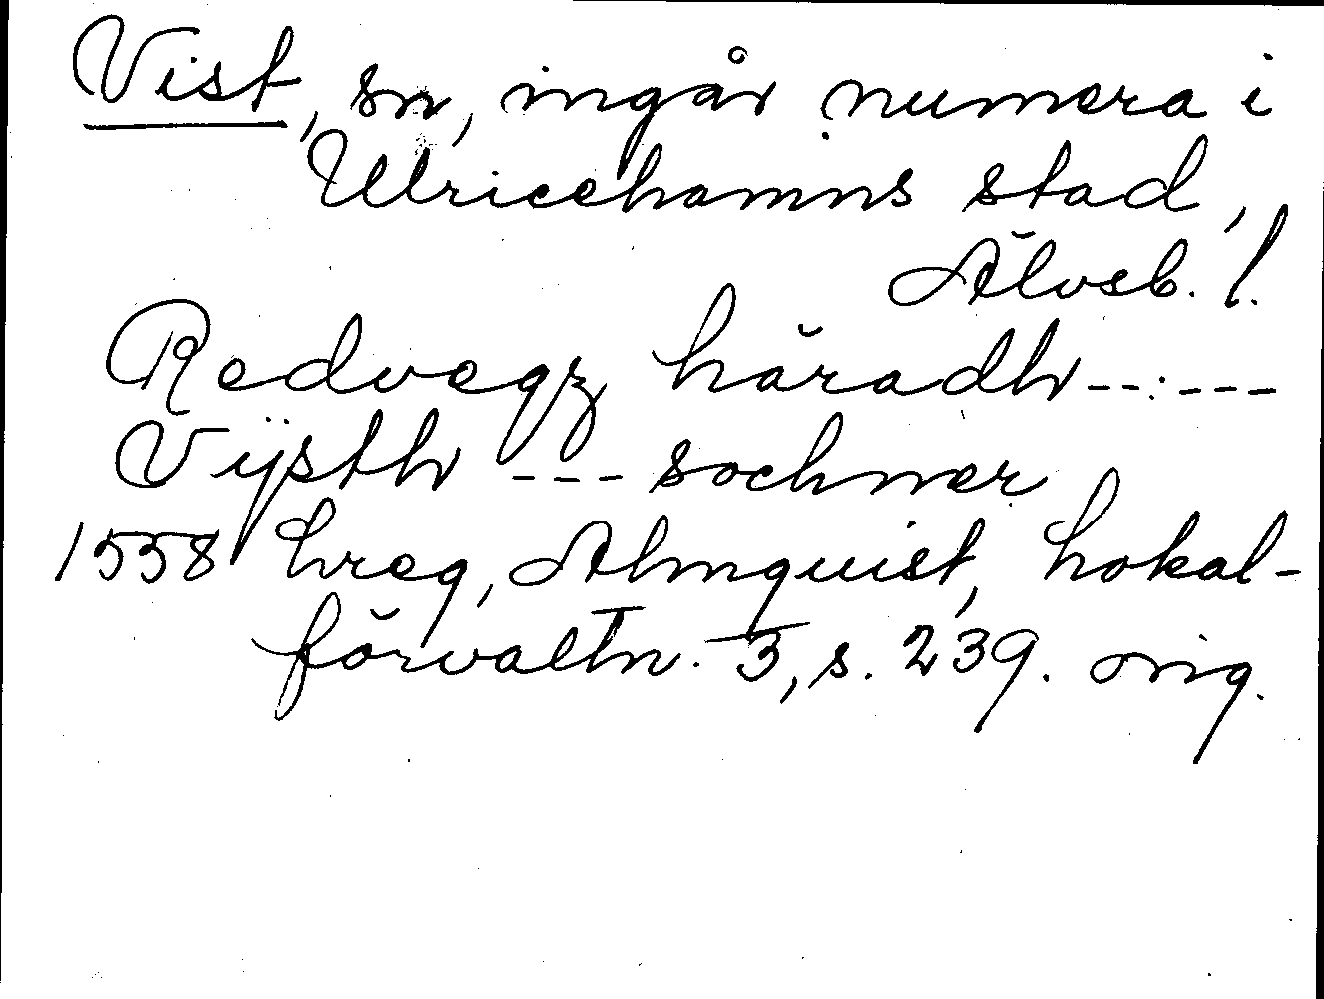 Vist, sn, ingår numera i
Ulricehamns stad,
Älvsb. l.
Redvegz häradh ------
Vijsth --- sochner
1558 hreg, Almquist, Lokal-
förvaltn. 3, s. 239. orig.